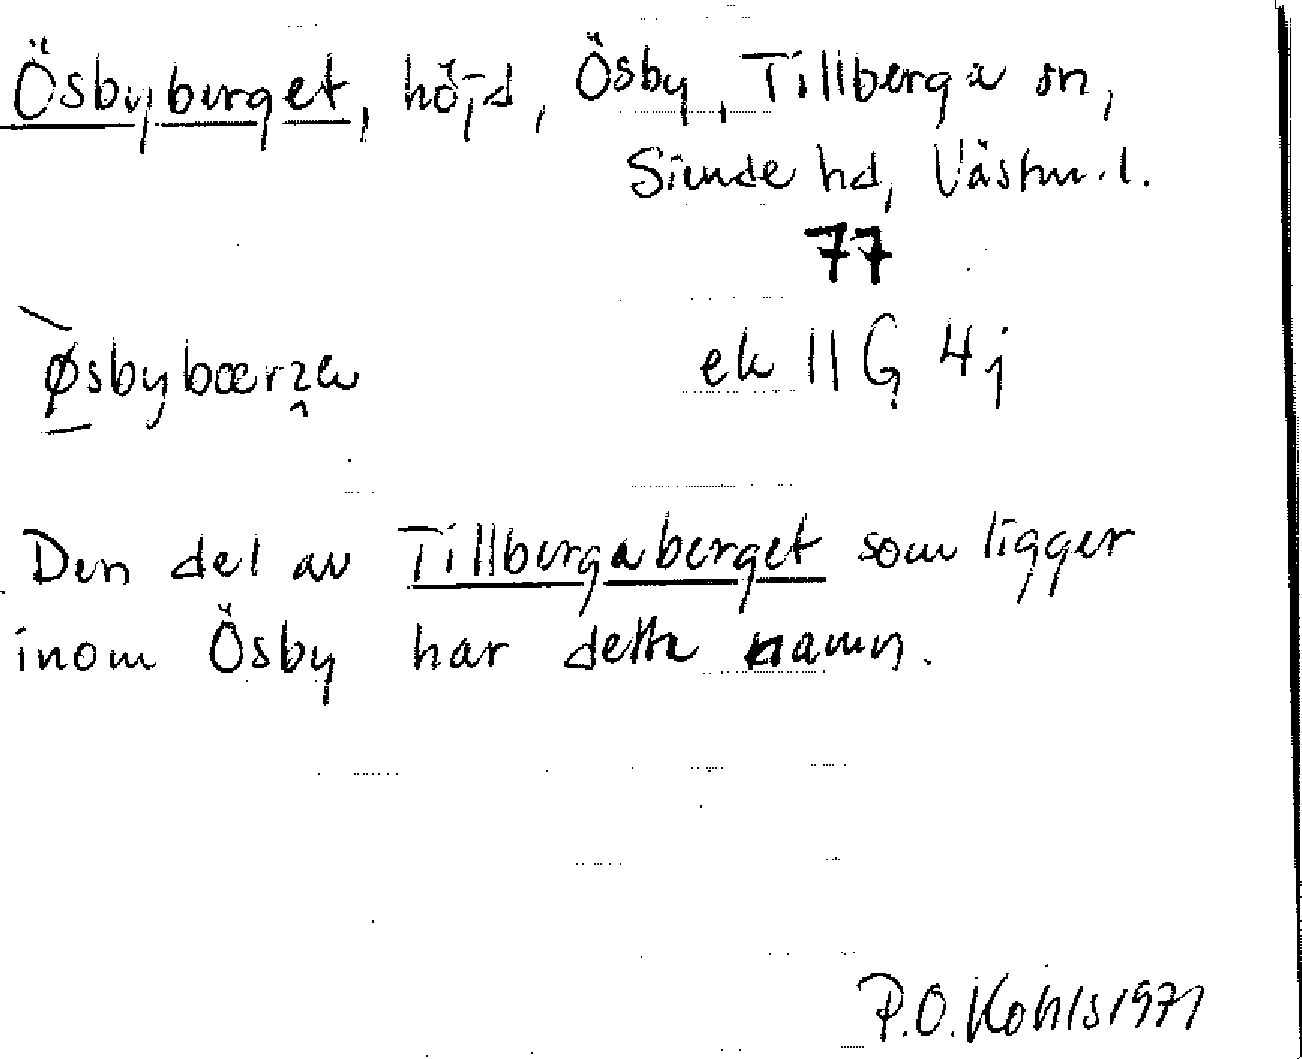 Ösbyberget, höjd, Ösby, Tillberga sn,
Siende hd, Västm.l.
77
ek 11G 4j
Den del av Tillbergaberget som ligger
inom Ösby har detta namn.
P.O. Kohls 1971